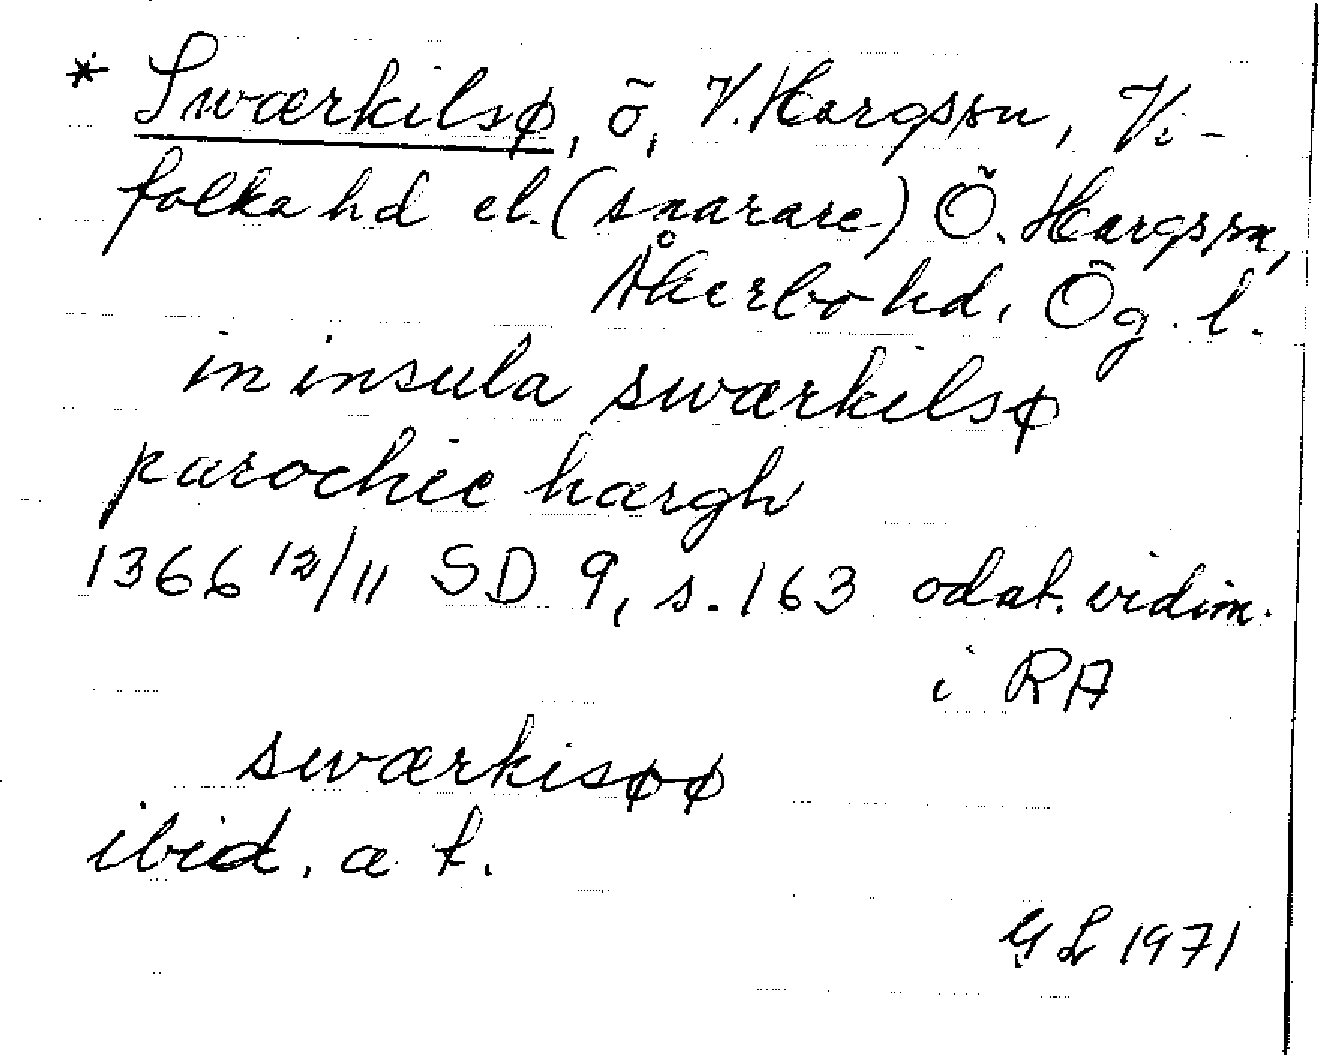 * Swærkilsø, ö, V. Hargs sn, Vi-
folka hd el. (snarare) Ö. Hargs sn,
Åkerbo hd, Ög. l.
in insula swærkilsø
parochie hærgh
1366 12/11 SD 9, s. 163 odat. vidim.
i RA
swærkisøø
ibid. a t.
GL 1971